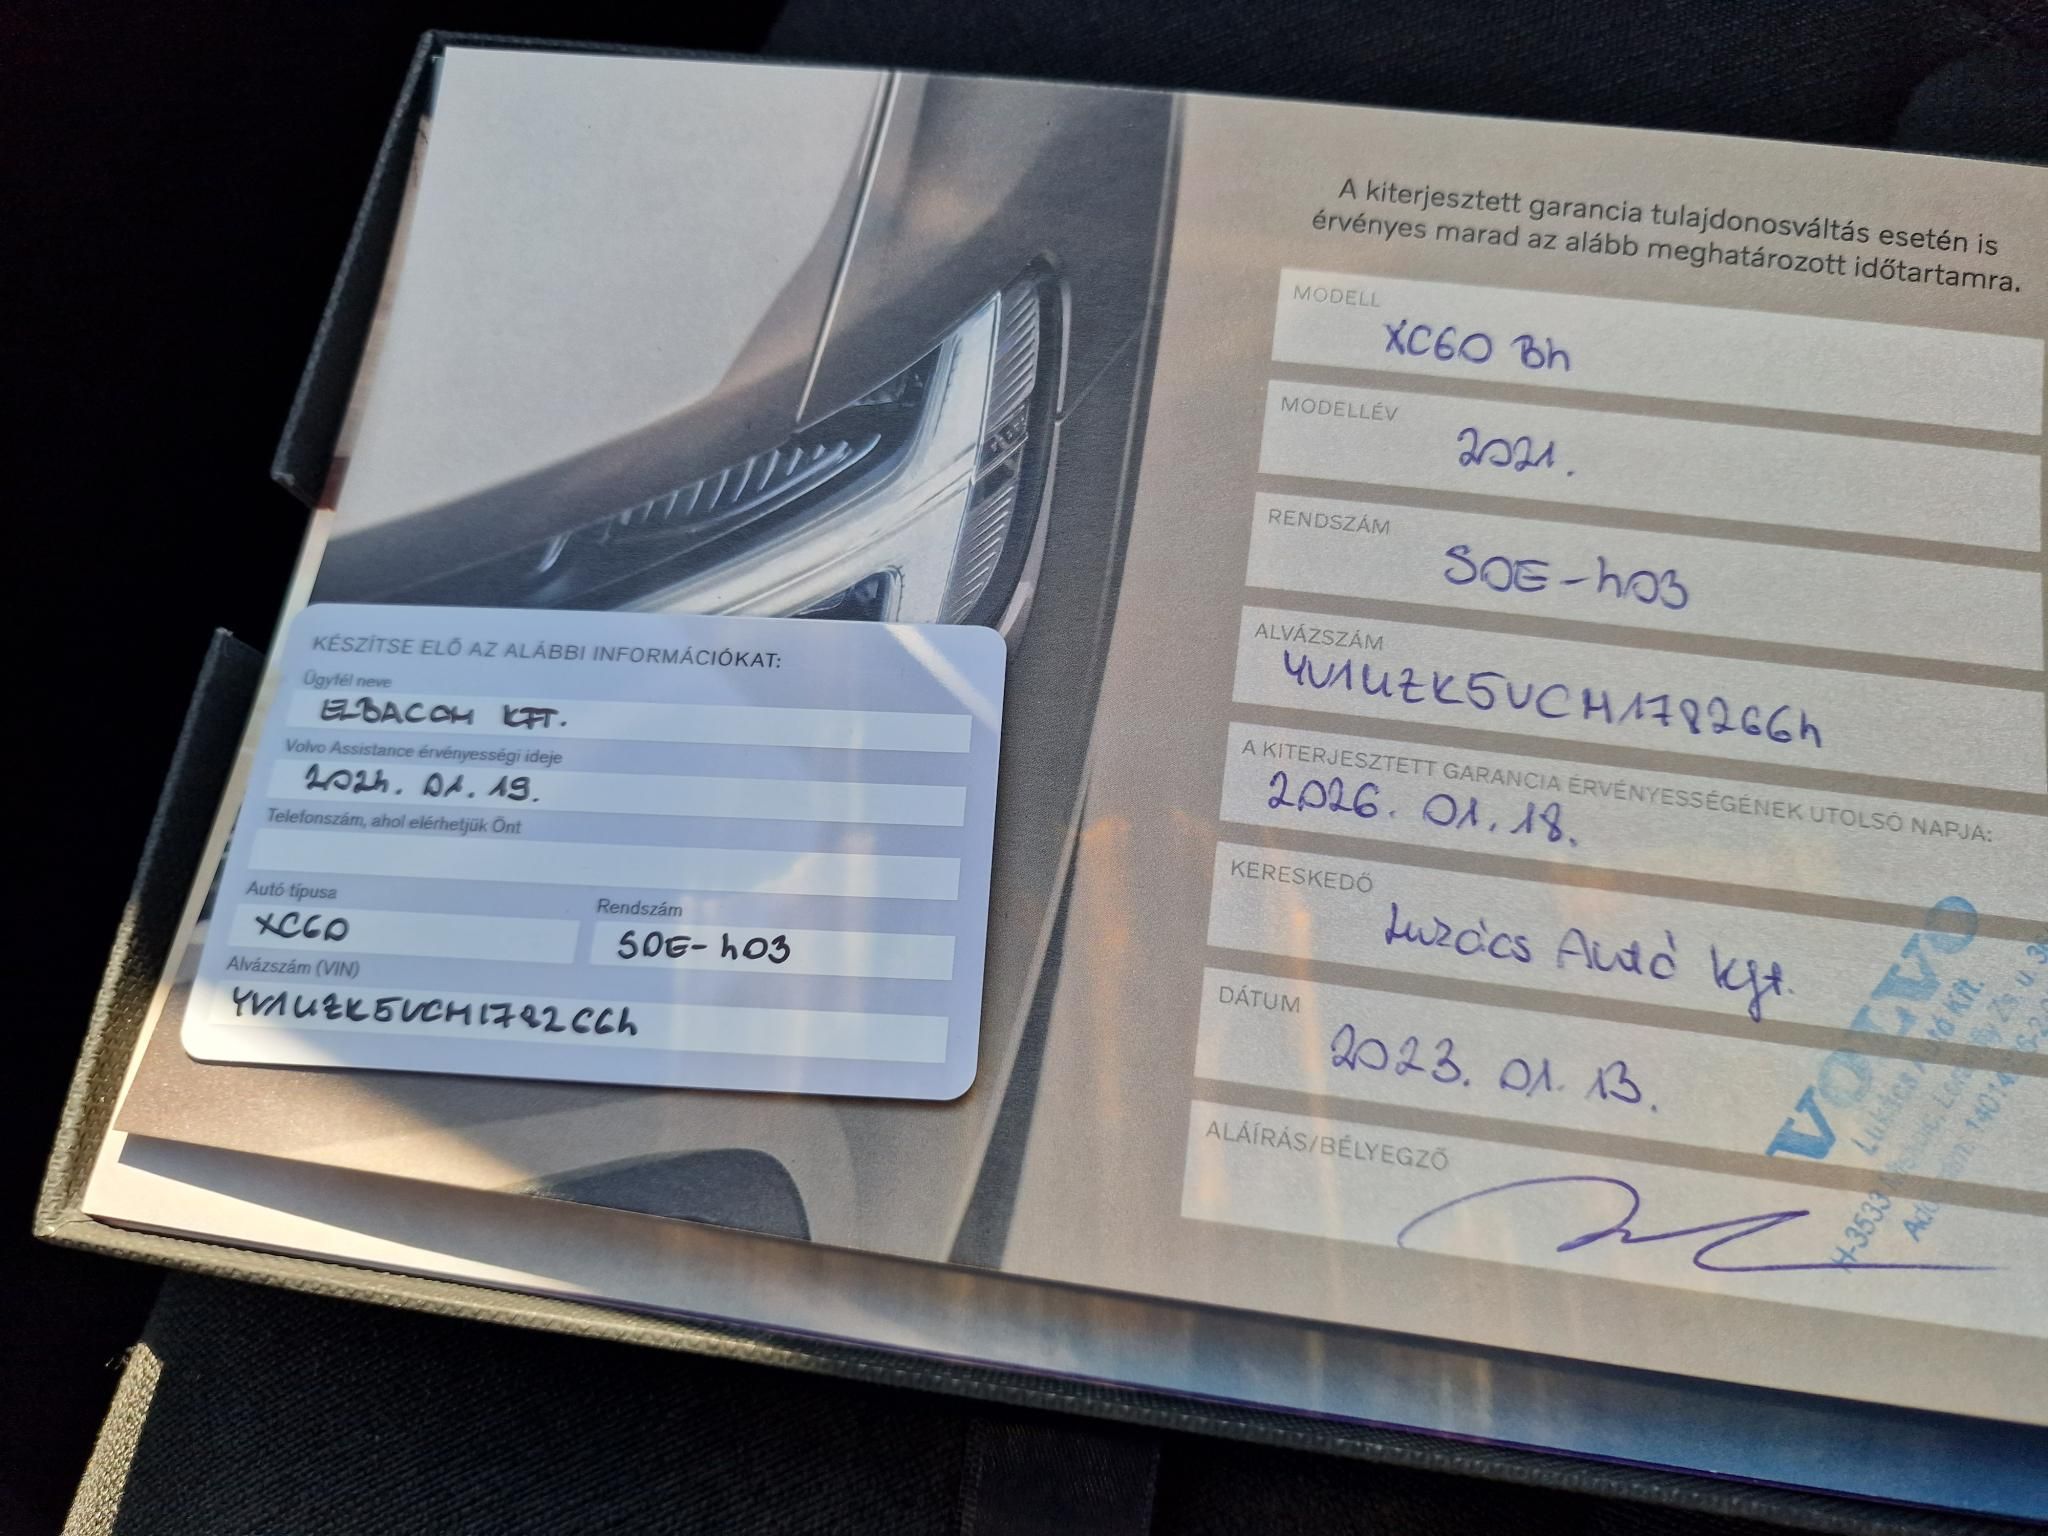 KÉSZÍTSE ELŐ AZ ALÁBBI INFORMÁCIÓKAT:
Ügyfél neve
ELBACOM KFT.
Volvo Assistance érvényességi ideje
2024. 01. 19.
Telefonszám, ahol elérhetjük Önt
Autó típusa
XC60
Rendszám
SOE-403
Alvázszám (VIN)
YV1UZK5VCM1782664
A kiterjesztett garancia tulajdonosváltás esetén is
érvényes marad az alább meghatározott időtartamra.
MODELL
XC60 B4
MODELLÉV
2021.
RENDSZÁM
SOE-403
ALVÁZSZÁM
YV1UZK5VCM1782664
A KITERJESZTETT GARANCIA ÉRVÉNYESSÉGÉNEK UTOLSÓ NAPJA:
2026. 01. 18.
KERESKEDŐ
Lukács Autó Kft.
DÁTUM
2023. 01. 13.
ALÁÍRÁS/BÉLYEGZŐ
VOLVO
Lukács Autó Kft.
H-3533